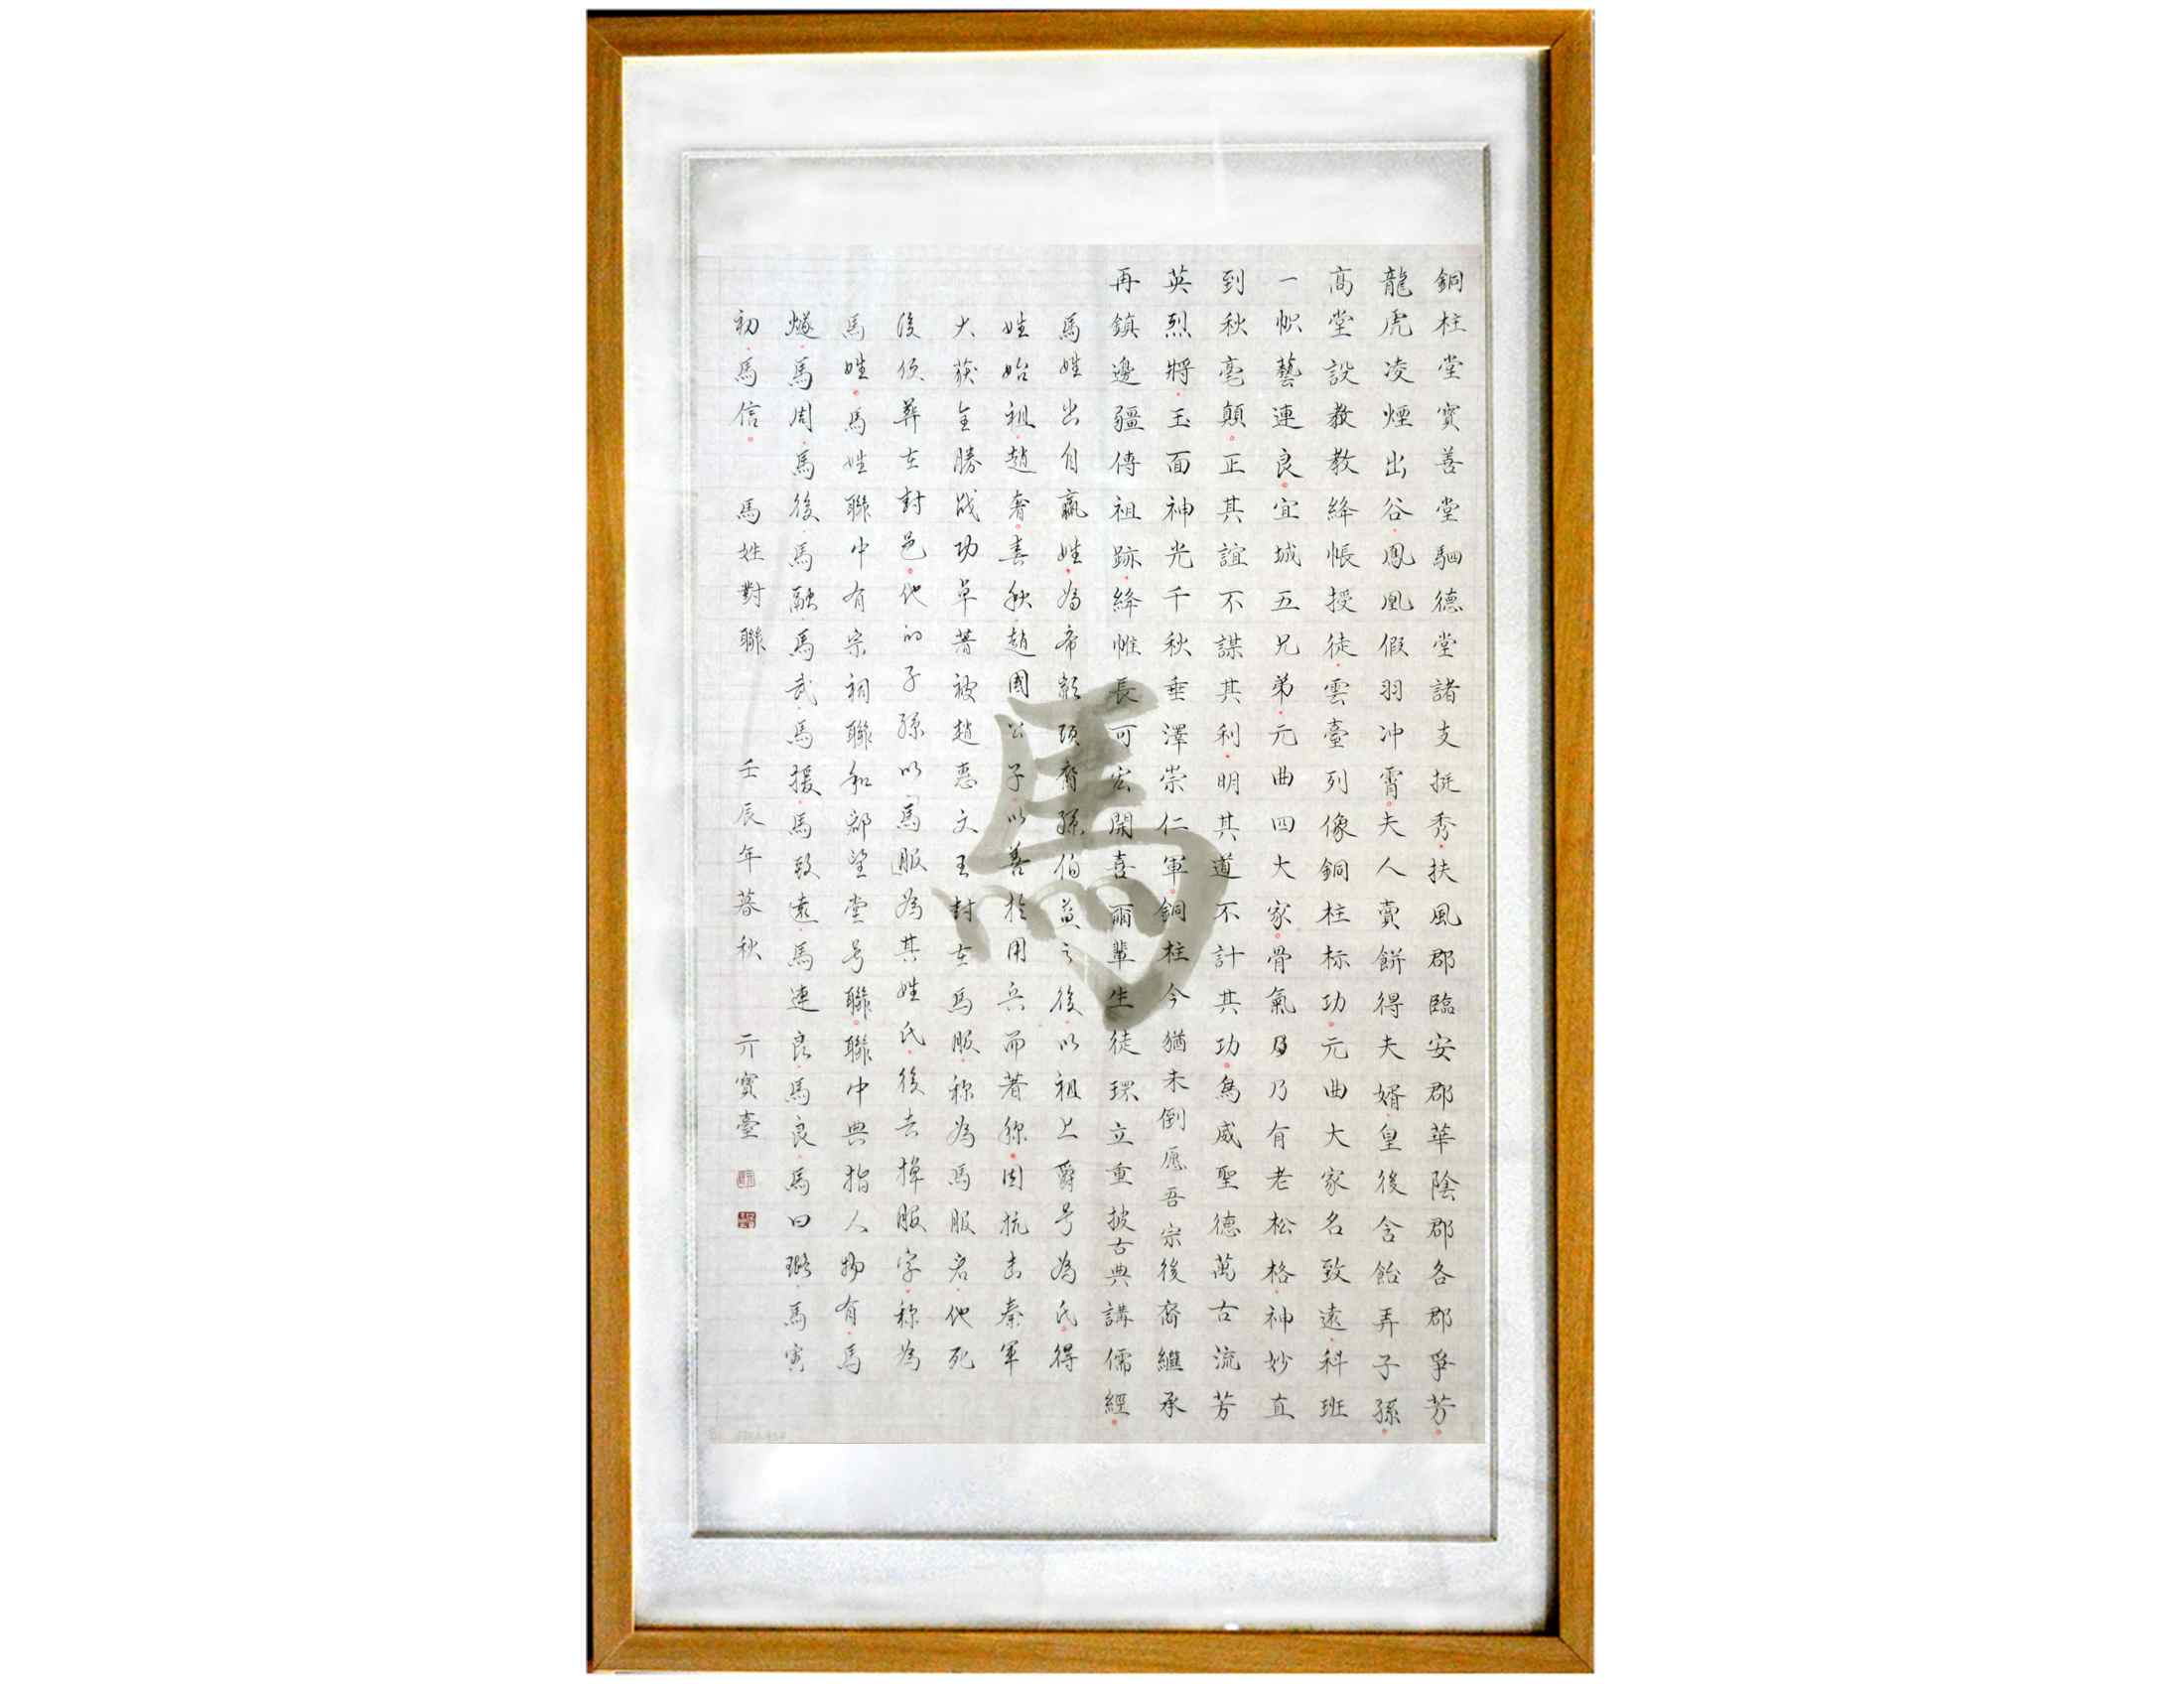 銅柱堂寶善堂駟德堂諸支挺秀扶風郡臨安郡華陰郡各郡爭芳
龍虎凌煙出谷鳳凰假羽冲霄夫人賣餅得夫婿皇後含飴弄子孫
高堂設教教絳帳授徒雲臺列像銅柱标功元曲大家名致遠科班
一帜藝連良宜城五兄弟元曲四大家骨氣乃有老松格神妙直
到秋毫顛正其誼不謀其利明其道不計其功為威聖德萬古流芳
英烈將玉面神光千秋垂澤崇仁軍銅柱今猶未倒愿吾宗後裔繼承
再鎮邊疆傳祖跡絳帷長可宏開喜爾輩生徒環立重披古典講儒經
馬姓出自嬴姓為帝顓頊裔孫伯益之後以祖上爵号為氏得
姓始祖趙奢春秋趙國公子以善於用兵而著称因抗击秦軍
大获全勝战功卓著被趙惠文王封在馬服称為馬服君他死
後便葬在封邑他的子孫以馬服為其姓氏後去掉服字称為
馬姓馬姓聯中有宗祠聯和郡望堂号聯聯中典指人物有馬
燧馬周馬後馬融馬武馬援馬致遠馬連良馬良馬曰璐馬寅
初馬信 馬姓對聯 壬辰年暮秋 亓寶臺
馬